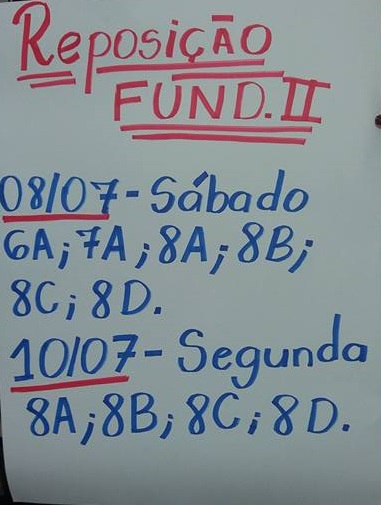 Reposição
FUND. II
08/07 - Sábado
6A; 7A; 8A; 8B;
8C; 8D.
10/07 - Segunda
8A; 8B; 8C; 8D.